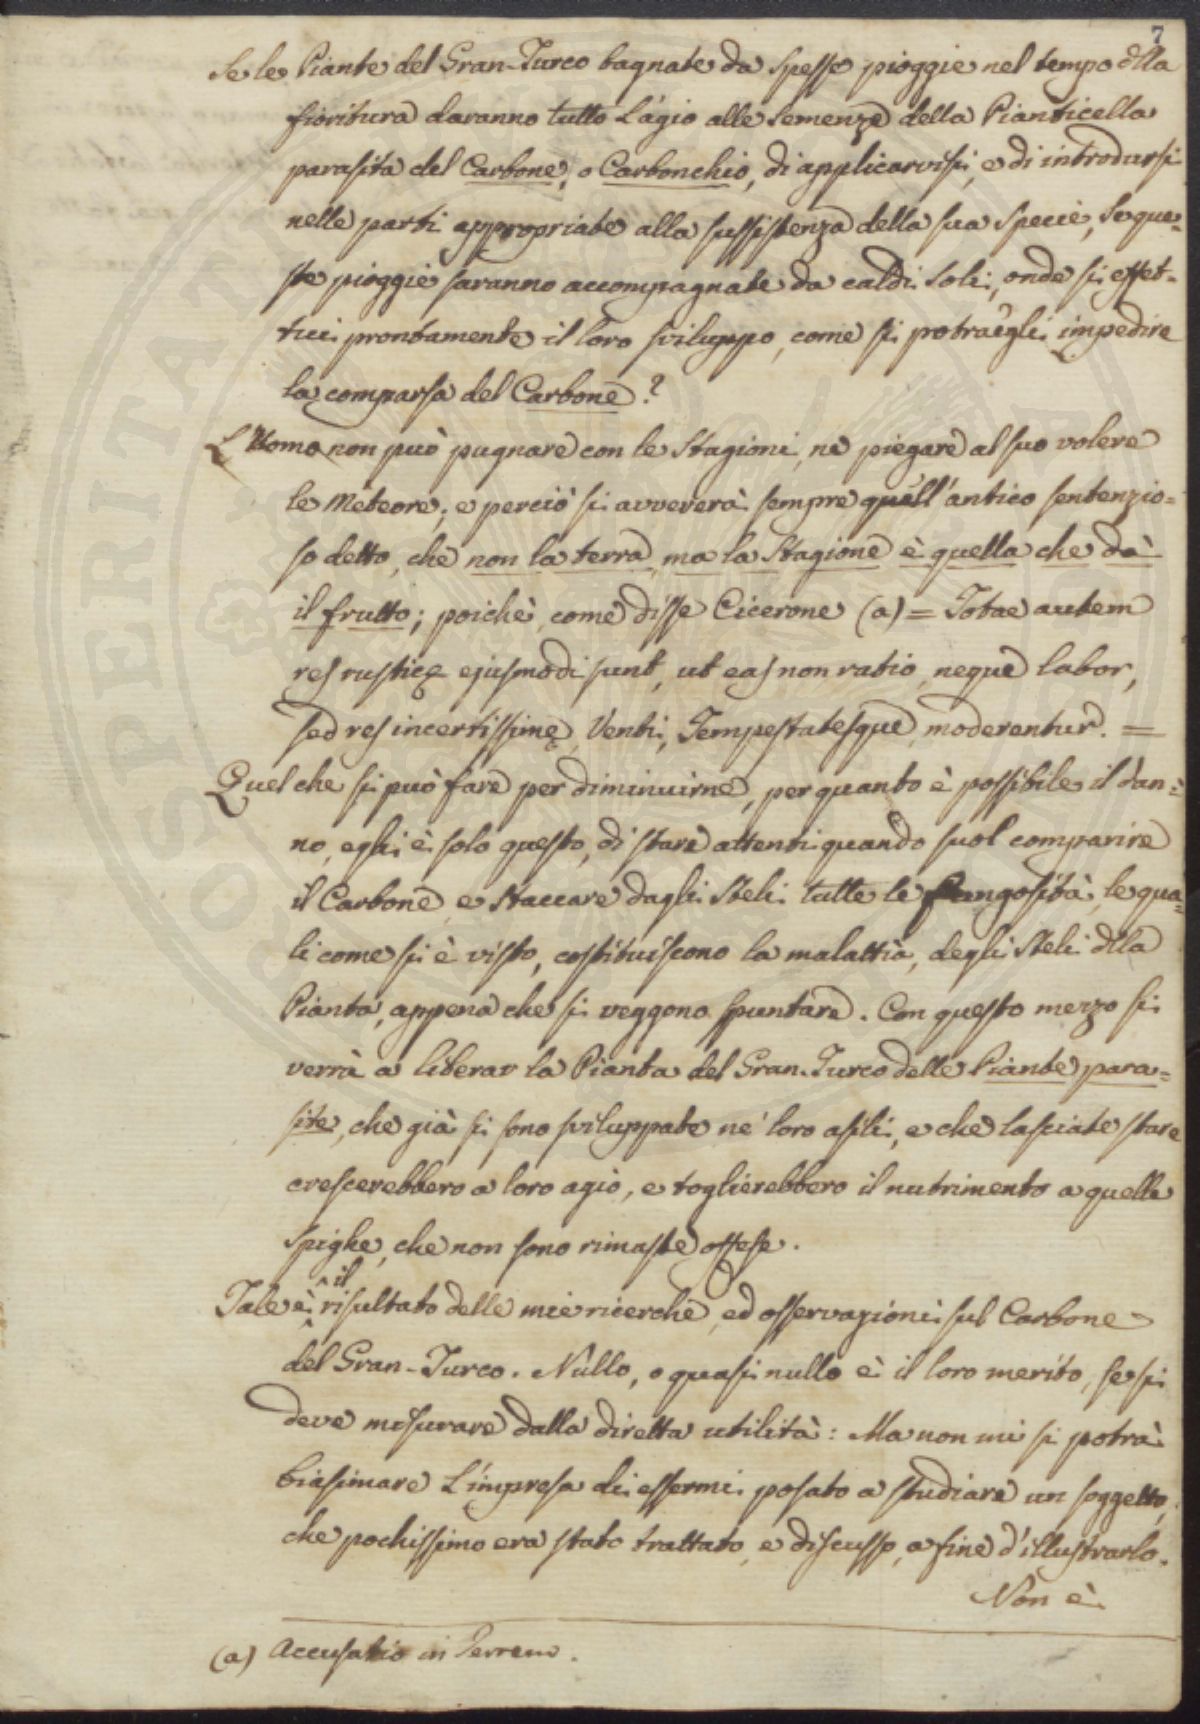 7
Se le Piante del Gran-Turco bagnate da spesse pioggie nel tempo della
fioritura daranno tutto l'agio alle semenze della Pianticella
parasita del Carbone, o Carbonchio, di applicarvisi, e di introdursi
nelle parti appropriate alla sussistenza della sua specie, se que=
ste pioggie saranno accompagnate da caldi Soli, onde si effet=
tui prontamente il loro sviluppo, come si potrà egli impedire
la comparsa del Carbone?
L'Uomo non può pugnare con le Stagioni, ne piegare al suo volere
le Meteore; e perciò si avvererà sempre quell'antico sentenzio=
so detto, che non la terra, ma la Stagione è quella che dà
il frutto; poichè, come disse Cicerone (a) = Totae autem
res rusticę ejusmodi sunt, ut eas non ratio, neque labor,
sed res incertissimę, Venti, Tempestatesque moderentur. =
Quel che si può fare per diminuirne, per quanto è possibile il dan=
no, egli è solo questo, di stare attenti quando suol comparire
il Carbone, e staccare dagli Steli tutte le fungosità, le qua=
li come si è visto, costituiscono la malattia, degli Steli dlla
Pianta, appena che si veggono spuntare. Con questo mezzo si
verrà a liberar la Pianta del Gran-Turco delle Piante para=
site, che già si sono sviluppate ne' loro asili, e che lasciate stare
crescerebbero a loro agio, e toglierebbero il nutrimento a quelle
Spighe, che non sono rimaste offese.
Tale è il risultato delle mie ricerche, ed osservazioni sul Carbone
del Gran-Turco. Nullo, o quasi nullo è il loro merito, se si
deve misurare dalla diretta utilità: Ma non mi si potrà
biasimare l'impresa di essermi posato a studiare un soggetto,
che pochissimo era stato trattato, e discusso, a fine d'illustrarlo.
Non è
(a) Accusatio in Verrem.